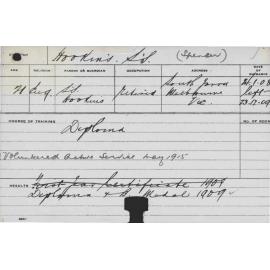 Hookins. S.S. (Spencer)
AGE RELIGION PARENT OR GUARDIAN OCCUPATION ADDRESS DATE OF ENTRANCE
21 S.S. Hookins Retired South Yarra Melbourne Vic. left 23.12.09
COURSE OF TRAINING
Diploma
Volunteered Active Service May 1915
RESULTS First Year Certificate 1908
Diploma & Medal 1909